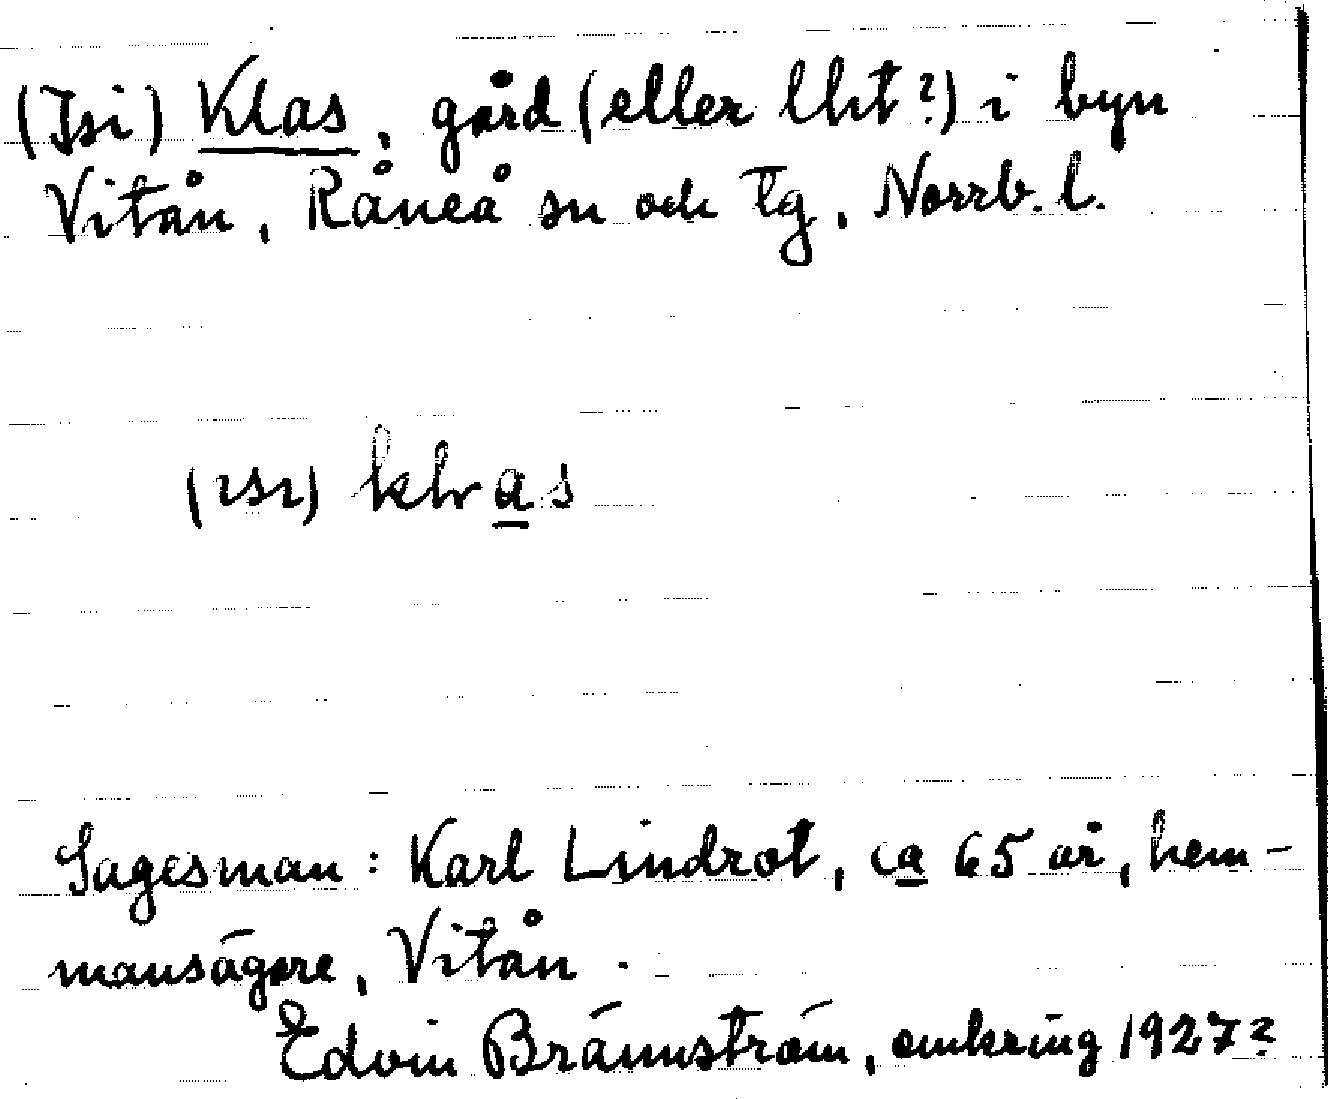 (Isi) Klas, gård (eller lht?) i byn
Vitån, Råneå sn och tg, Norrb. l.
(ısı) klas
Sagesman: Karl Lindrot, ca 65 år, hem-
mansägare, Vitån.
Edvin Brännström, omkring 1927?